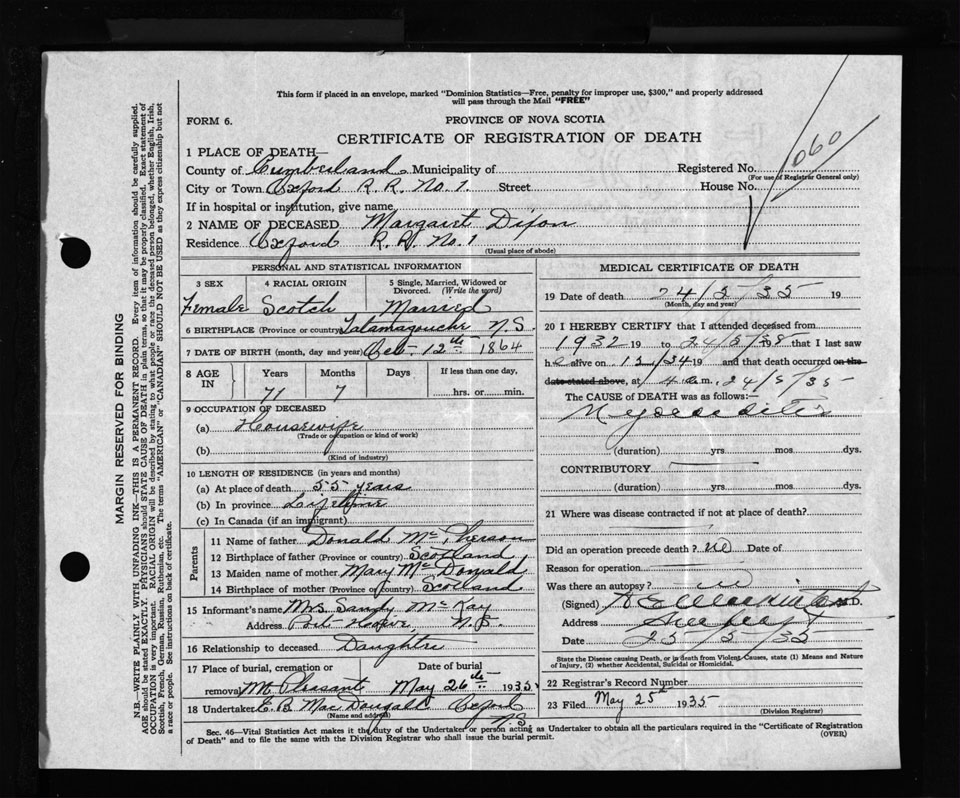 This form if placed in an envelope, marked "Dominion Statistics—Free, penalty for improper use, $300," and properly addressed
will pass through the Mail "FREE"
FORM 6.
PROVINCE OF NOVA SCOTIA
CERTIFICATE OF REGISTRATION OF DEATH
1 PLACE OF DEATH—
County of Cumberland Municipality of Registered No. 1060
(For use of Registrar General only)
City or Town Oxford R. R. No. 1 Street House No.
If in hospital or institution, give name
2 NAME OF DECEASED Margaret Dixon
Residence Oxford R. R. No. 1
(Usual place of abode)
PERSONAL AND STATISTICAL INFORMATION
3 SEX 4 RACIAL ORIGIN 5 Single, Married, Widowed or Divorced. (Write the word)
Female Scotch Married
6 BIRTHPLACE (Province or country) Tatamagouche N.S.
7 DATE OF BIRTH (month, day and year) Oct. 12th 1864
8 AGE IN Years Months Days If less than one day,
71 7 hrs. or min.
9 OCCUPATION OF DECEASED
(a) Housewife
(Trade or occupation or kind of work)
(b)
(Kind of industry)
10 LENGTH OF RESIDENCE (in years and months)
(a) At place of death 55 years
(b) In province Lifetime
(c) In Canada (if an immigrant)
Parents
11 Name of father Donald McPherson
12 Birthplace of father (Province or country) Scotland
13 Maiden name of mother Mary McDonald
14 Birthplace of mother (Province or country) Scotland
15 Informant's name Mrs. Sandy McKay
Address N.S.
16 Relationship to deceased Daughter
17 Place of burial, cremation or Date of burial
removal Mt. Pleasant May 26th 1935
18 Undertaker E B MacDougall Oxford
(Name and address) N.S.
MEDICAL CERTIFICATE OF DEATH
19 Date of death 24/5/35 19
(Month, day and year)
20 I HEREBY CERTIFY that I attended deceased from
1932 19 to 24/5/35 that I last saw
h alive on 19 and that death occurred on the
date stated above, at 4 a.m. 24/5/35
The CAUSE OF DEATH was as follows:—
Myocarditis
(duration) yrs. mos. dys.
CONTRIBUTORY
(duration) yrs. mos. dys.
21 Where was disease contracted if not at place of death?
Did an operation precede death? no Date of
Reason for operation
Was there an autopsy?
(Signed) M.D.
Address
Date 25/5/35
State the Disease causing Death, or in death from Violent Causes, state (1) Means and Nature
of Injury, (2) whether Accidental, Suicidal or Homicidal.
22 Registrar's Record Number
23 Filed May 25th 1935
(Division Registrar)
Sec. 46—Vital Statistics Act makes it the duty of the Undertaker or person acting as Undertaker to obtain all the particulars required in the "Certificate of Registration
of Death" and to file the same with the Division Registrar who shall issue the burial permit.
(OVER)
MARGIN RESERVED FOR BINDING
N.B.—WRITE PLAINLY WITH UNFADING INK—THIS IS A PERMANENT RECORD. Every item of information should be carefully supplied.
AGE should be stated EXACTLY. PHYSICIANS should STATE CAUSE OF DEATH in plain terms, so that it may be properly classified. Exact statement of
OCCUPATION is very important. RACIAL ORIGIN will be described by stating to what people or race the deceased person belonged, whether English, Irish,
Scottish, French, German, Russian, Ruthenian, etc. The terms "AMERICAN" or "CANADIAN" SHOULD NOT BE USED as they express citizenship but not
a race or people. See instructions on back of certificate.